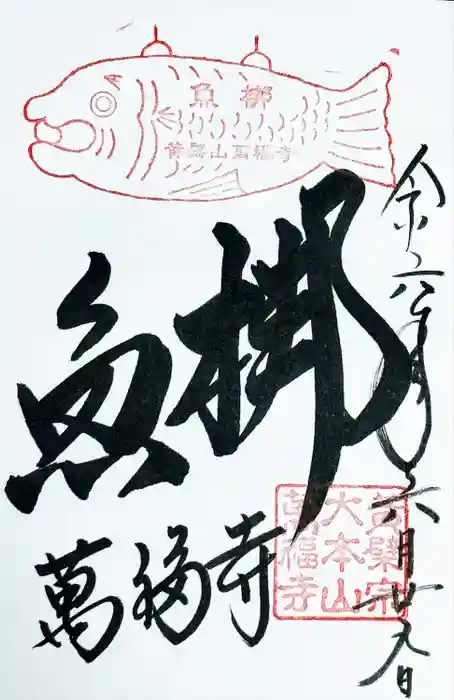 魚梆
黄檗山萬福寺
魚梆
萬福寺
令和六年六月廿九日
黄檗宗
大本山
萬福寺